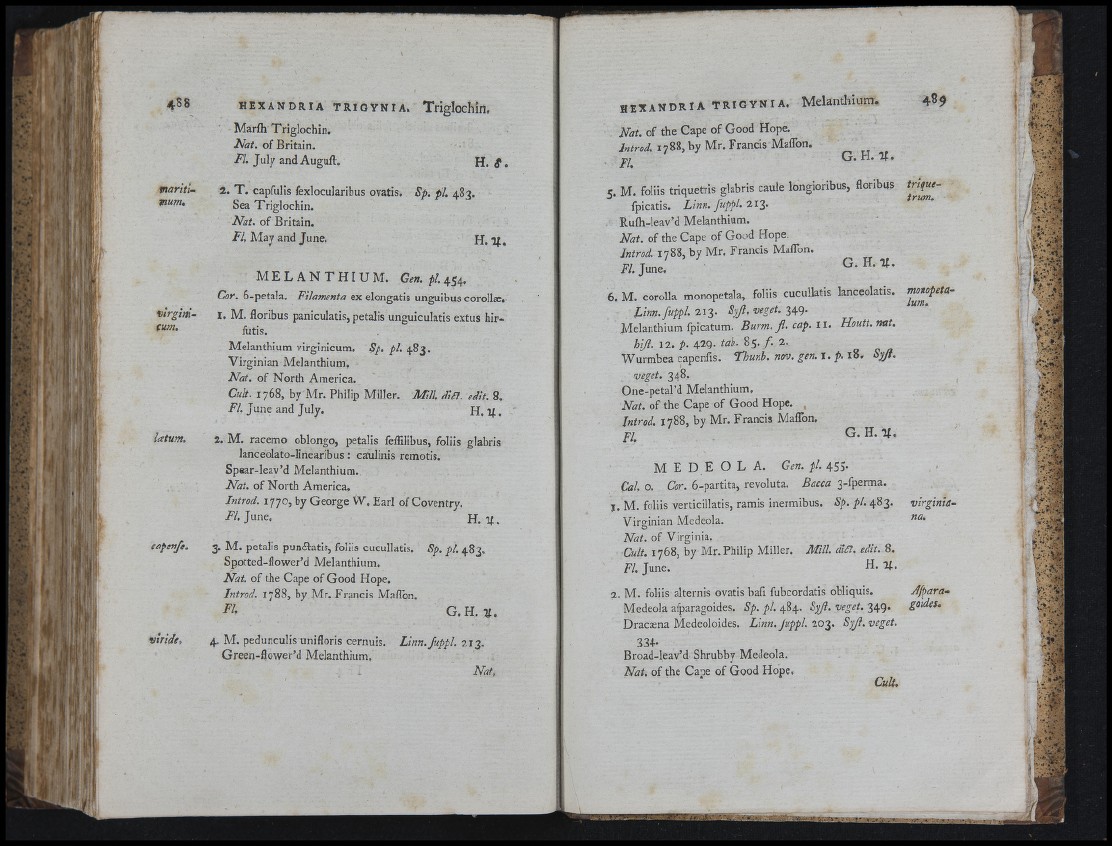 488 HEXANDRIA TRIGYNIA. Triglochin.
Marſh Triglochin.
Nat. of Britain.
Fl. July and Auguſt. H. ♂.
mariti- 2. T. capſulis ſexlocularibus ovatis. Sp. pl. 483.
mum. Sea Triglochin.
Nat. of Britain.
Fl. May and June. H. ♃.
MELANTHIUM. Gen. pl. 454.
Cor. 6-petala. Filamenta ex elongatis unguibus corollæ.
virgini- 1. M. floribus paniculatis, petalis unguiculatis extus hir-
cum. ſutis.
Melanthium virginicum. Sp. pl. 483.
Virginian Melanthium.
Nat. of North America.
Cult. 1768, by Mr. Philip Miller. Mill. dict. edit. 8.
Fl. June and July. H. ♃.
lætum. 2. M. racemo oblongo, petalis ſeſſilibus, foliis glabris
lanceolato-linearibus: caulinis remotis.
Spear-leav'd Melanthium.
Nat. of North America.
Introd. 1770, by George W. Earl of Coventry.
Fl. June. H. ♃.
capenſe. 3. M. petalis punctatis, foliis cucullatis. Sp. pl. 483.
Spotted-flower'd Melanthium.
Nat. of the Cape of Good Hope.
Introd. 1788, by Mr. Francis Maſſon.
Fl. G. H. ♃.
viride. 4. M. pedunculis unifloris cernuis. Linn. ſuppl. 213.
Green-flower'd Melanthium.
Nat.
HEXANDRIA TRIGYNIA. Melanthium. 489
Nat. of the Cape of Good Hope.
Introd. 1788, by Mr. Francis Maſſon.
Fl. G. H. ♃.
5. M. foliis triquetris glabris caule longioribus, floribus trique-
ſpicatis. Linn. ſuppl. 213. trum.
Ruſh-leav'd Melanthium.
Nat. of the Cape of Good Hope.
Introd. 1788, by Mr. Francis Maſſon.
Fl. June. G. H. ♃.
6. M. corolla monopetala, foliis cucullatis lanceolatis. monopeta-
Linn. ſuppl. 213. Syſt. veget. 349. lum.
Melanthium ſpicatum. Burm. fl. cap. 11. Houtt. nat.
hiſt. 12. p. 429. tab. 85. f. 2.
Wurmbea capenſis. Thunb. nov. gen. 1. p. 18. Syſt.
veget. 348.
One-petal'd Melanthium.
Nat. of the Cape of Good Hope.
Introd. 1788, by Mr. Francis Maſſon.
Fl. G. H. ♃.
MEDEOLA. Gen. pl. 455.
Cal. 0. Cor. 6-partita, revoluta. Bacca 3-ſperma.
1. M. foliis verticillatis, ramis inermibus. Sp. pl. 483. virginia-
Virginian Medeola. na.
Nat. of Virginia.
Cult. 1768, by Mr. Philip Miller. Mill. dict. edit. 8.
Fl. June. H. ♃.
2. M. foliis alternis ovatis baſi ſubcordatis obliquis. Aſpara-
Medeola aſparagoides. Sp. pl. 484. Syſt. veget. 349. goides.
Dracæna Medeoloides. Linn. ſuppl. 203. Syſt. veget.
334.
Broad-leav'd Shrubby Medeola.
Nat. of the Cape of Good Hope.
Cult.